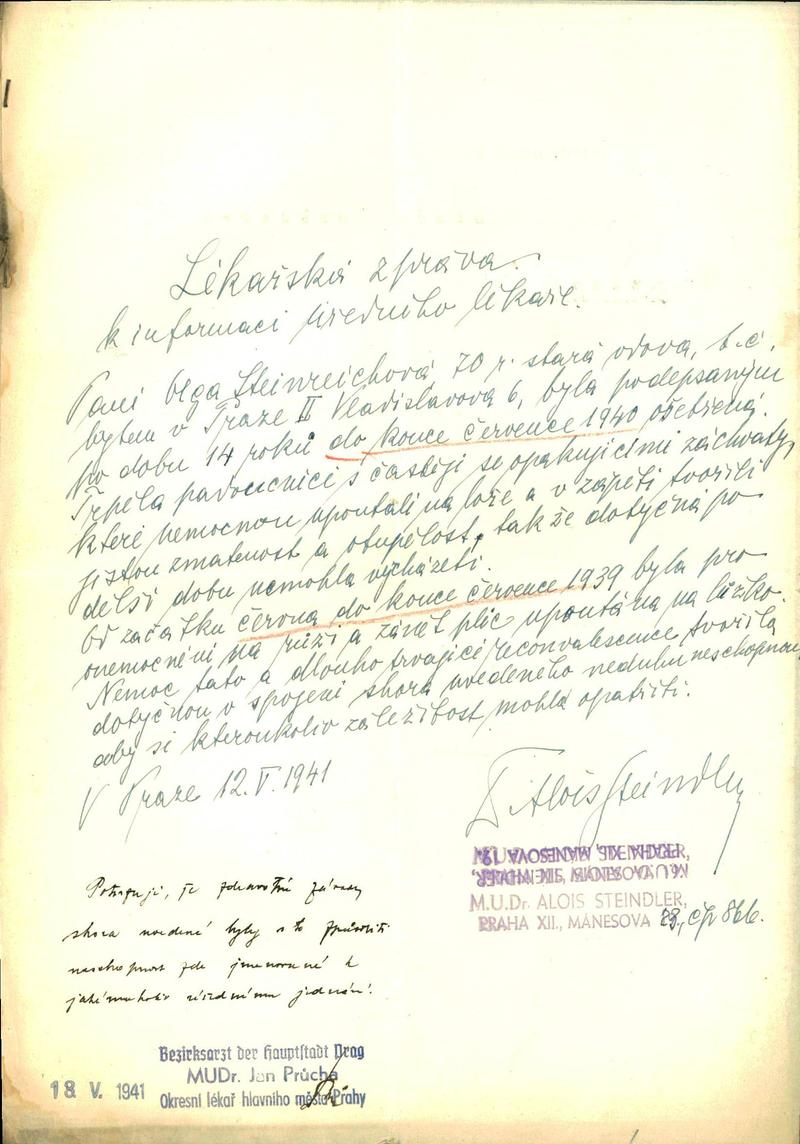 Lékařská zpráva
k informaci úředního lékaře.
Paní Olga Steinreichová 70 r. stará vdova, t.č.
bytem v Praze II Vladislavova 6, byla podepsaným
po dobu 14 roků do konce července 1940 ošetřena.
Trpěla padoucnicí s častěji se opakujícími záchvaty,
které nemocnou upoutali na lože a v zápětí tvořili
jistou zmatenost a otupělost, takže dotyčná po
delší dobu nemohla vycházeti.
Od začátku června do konce července 1939 byla pro
onemocnění na růži a zánět plic upoutána na lůžko.
Nemoc tato a dlouho trvající reconvalescence tvořila
dotyčnou v spojení shora uvedeného neduhu neschopnou,
aby si kteroukoliv záležitost mohla opatřiti.
V Praze 12.V.1941
Dr Alois Steindler
M.U.Dr. ALOIS STEINDLER,
PRAHA XII., MÁNESOVA 19.
M.U.Dr. ALOIS STEINDLER,
PRAHA XII., MÁNESOVA čp 866.
Potvrzuji, že zdravotní závady
shora uvedené byly s to způsobiti
neschopnost zde jmenované k
jakémukoliv úřednímu jednání.
Bezirksarzt der Hauptstadt Prag
MUDr. Jan Průcha
18 V. 1941 Okresní lékař hlavního města Prahy